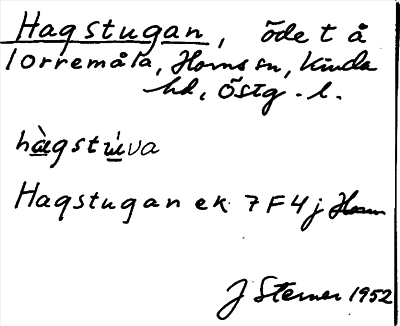 Hagstugan, öde t å
Torremåla, Horns sn, Kinda
hd, Östg. l.
hàgstúva
Hagstugan ek 7 F 4 j Horn
J Sterner 1952